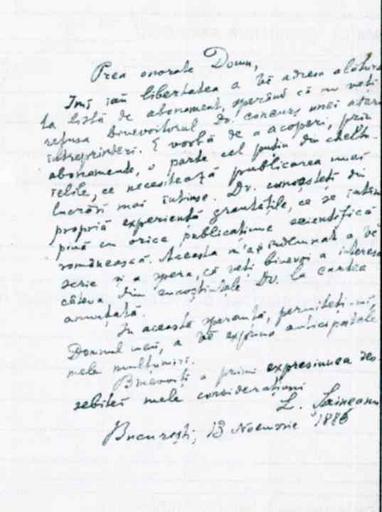 Prea onorate Domn,
Îmi iau libertatea a Vă adresa alătura-
ta listă de abonament, sperând că nu veți
refusa binevoitorul Dv. concurs unei atari
întreprinderi. E vorbă de a acoperi, prin
abonamente, o parte cel puțin din cheltu-
ielile, ce necesitează publicarea unei
lucrări mai întinse. Dv. cunoașteți din
propria experiență greutățile, ce se întîm-
pină cu orice publicațiune scientifică
românească. Aceasta m'a îndemnat a vă
scrie și a spera, că veți binevoi a interesa
câteva din cunoștințele Dv. la cartea
anunțată.
In această speranță, permiteți-mi,
Domnul meu, a vă exprima anticipatele
mele mulțumiri.
Binevoiți a primi expresiunea deo-
sebitei mele considerațiuni
L. Șăineanu
București, 13 Noemvrie 1886